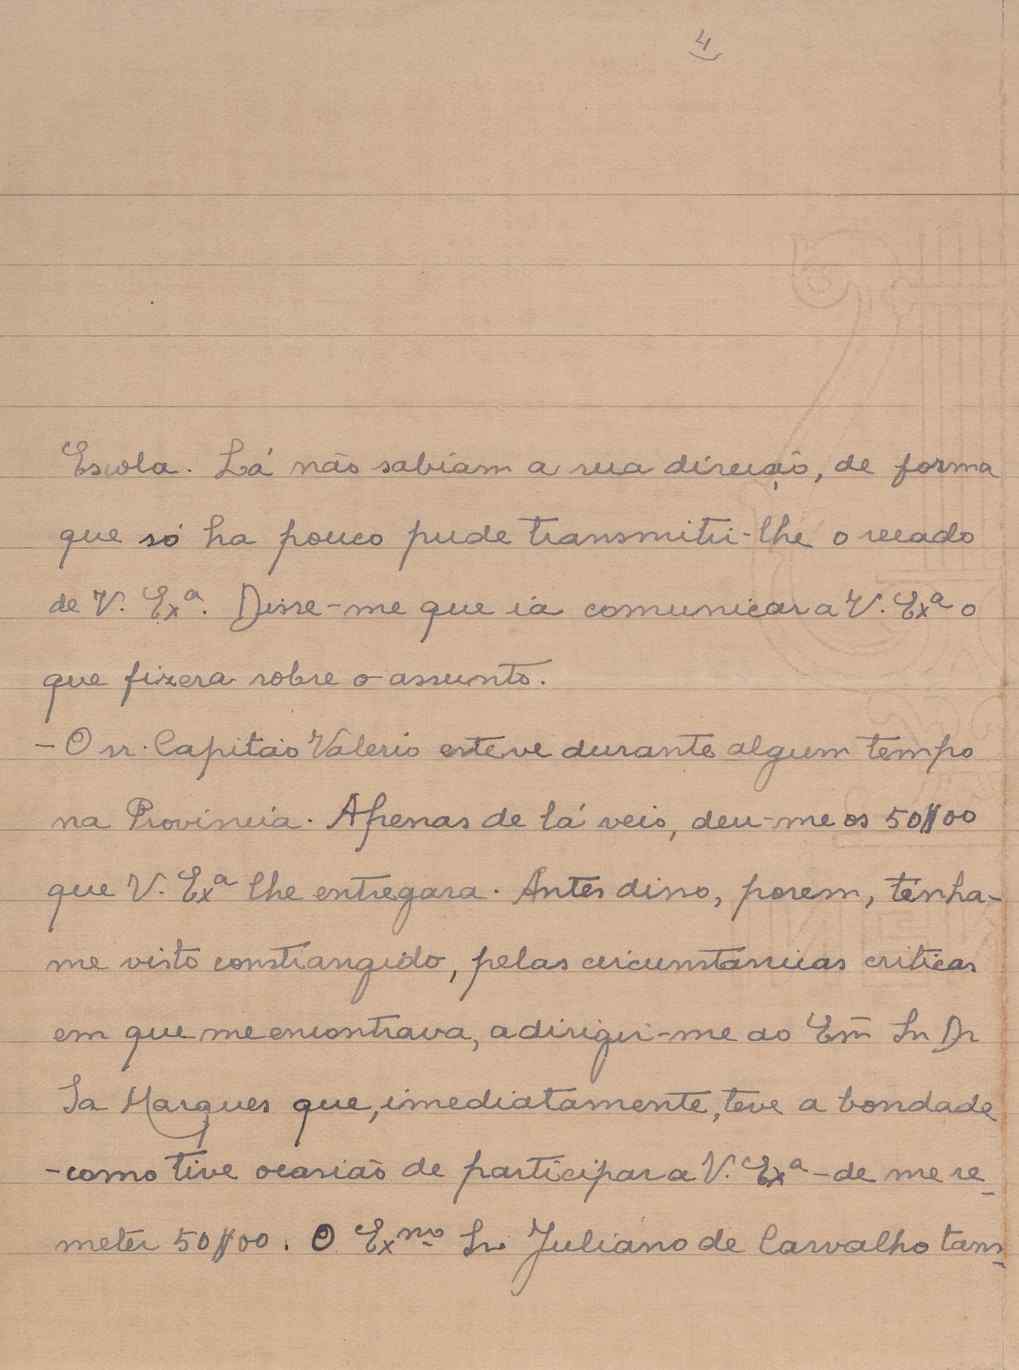 4
Escola. Lá não sabiam a sua direcção, de forma
que só ha pouco pude transmitir-lhe o recado
de V. Exª. Disse-me que ia comunicar a V. Exª o
que fizera sobre o assunto.
- O sr. Capitão Valerio esteve durante algum tempo
na Provincia. Apenas de lá veio, deu-me os 50$00
que V. Exª lhe entregara. Antes disso, porem, tenha-
me visto constrangido, pelas circunstancias criticas
em que me encontrava, a dirigir-me ao Exm̄ Sr Dr
Sa Marques que, imediatamente, teve a bondade
- como tive ocasião de participar a V. Exª - de me re-
meter 50$00. O Exmo Sr. Juliano de Carvalho tam-